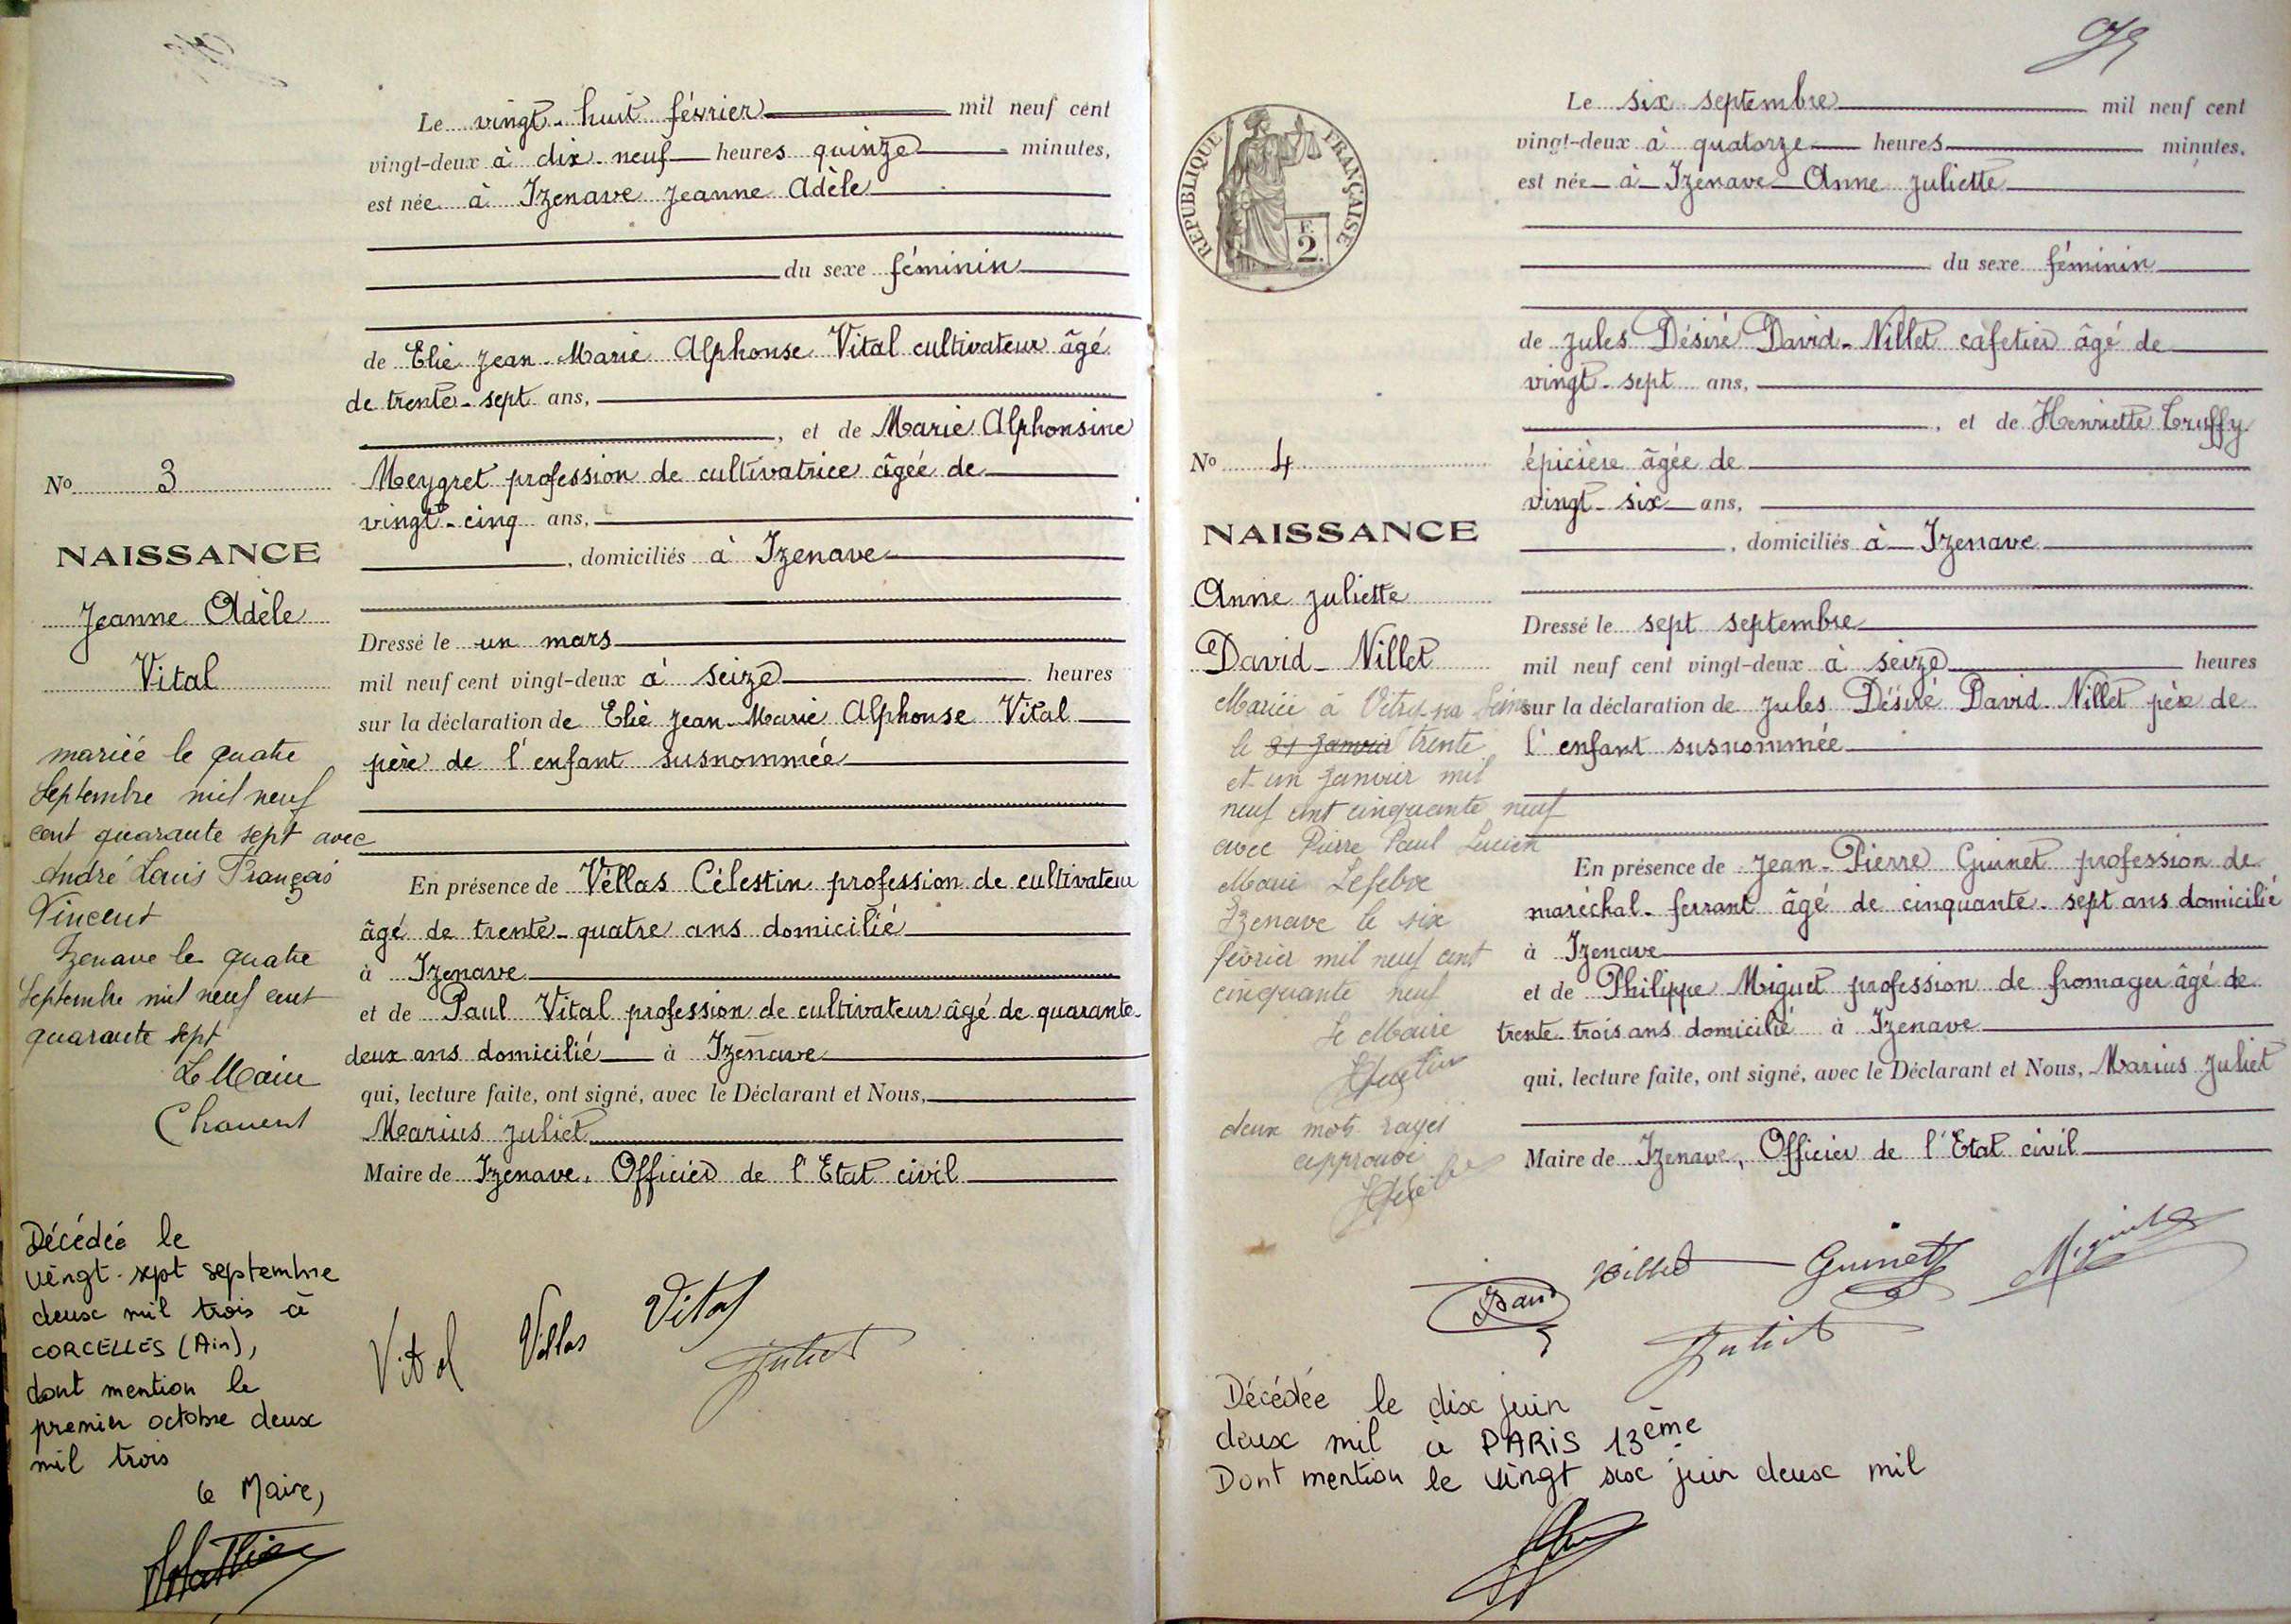 Le vingt-huit février mil neuf cent
vingt-deux à dix-neuf heures quinze minutes,
est née à Izenave Jeanne Adèle
du sexe féminin
de Elie Jean-Marie Alphonse Vital cultivateur âgé
de trente-sept ans,
, et de Marie Alphonsine
Meygret profession de cultivatrice âgée de
vingt-cinq ans,
, domiciliés à Izenave
Dressé le un mars
mil neuf cent vingt-deux à seize heures
sur la déclaration de Elie Jean-Marie Alphonse Vital
père de l'enfant susnommée
En présence de Vellas Célestin profession de cultivateur
âgé de trente-quatre ans domicilié
à Izenave
et de Paul Vital profession de cultivateur âgé de quarante-
deux ans domicilié à Izenave
qui, lecture faite, ont signé, avec le Déclarant et Nous,
Marius Juliet
Maire de Izenave, Officier de l'Etat civil
Vital Vellas Vital
Juliet
No 3
NAISSANCE
Jeanne Adèle
Vital
mariée le quatre
Septembre mil neuf
cent quarante sept avec
André Louis François
Vincent
Izenave le quatre
Septembre mil neuf cent
quarante sept
Le Maire
Décédée le
vingt-sept septembre
deux mil trois à
CORCELLES (Ain),
dont mention le
premier octobre deux
mil trois
Le Maire,
REPUBLIQUE FRANÇAISE
F.
2.
Le six septembre mil neuf cent
vingt-deux à quatorze heures minutes,
est née à Izenave Anne Juliette
du sexe féminin
de Jules Désiré David-Nillet cafetier âgé de
vingt-sept ans,
, et de Henriette Truffy
épicière âgée de
vingt-six ans,
, domiciliés à Izenave
Dressé le sept septembre
mil neuf cent vingt-deux à seize heures
sur la déclaration de Jules Désiré David-Nillet père de
l'enfant susnommée
En présence de Jean-Pierre Guinet profession de
maréchal-ferrant âgé de cinquante-sept ans domicilié
à Izenave
et de Philippe Miguet profession de fromager âgé de
trente-trois ans domicilié à Izenave
qui, lecture faite, ont signé, avec le Déclarant et Nous, Marius Juliet
Maire de Izenave, Officier de l'Etat civil
David Nillet Guinet Miguet
Juliet
No 4
NAISSANCE
Anne Juliette
David-Nillet
Mariée à Vitry sur Seine
le 31 janvier trente
et un janvier mil
neuf cent cinquante neuf
avec Pierre Paul Lucien
Marie Lefebvre
Izenave le six
février mil neuf cent
cinquante neuf
Le Maire
deux mots rayés
approuvé
Décédée le dix juin
deux mil à PARIS 13ème
Dont mention le vingt six juin deux mil